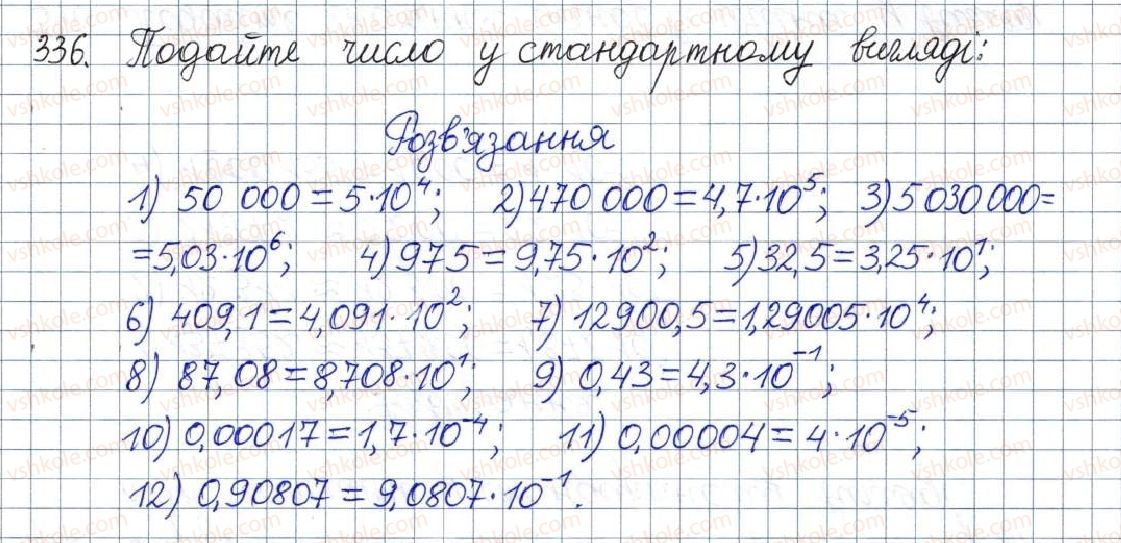 336. Подайте число у стандартному вигляді:
Розв'язання
1) 50 000 = 5·10⁴; 2) 470 000 = 4,7·10⁵; 3) 5 030 000 =
= 5,03·10⁶; 4) 975 = 9,75·10²; 5) 32,5 = 3,25·10¹;
6) 409,1 = 4,091·10²; 7) 12900,5 = 1,29005·10⁴;
8) 87,08 = 8,708·10¹; 9) 0,43 = 4,3·10⁻¹;
10) 0,00017 = 1,7·10⁻⁴; 11) 0,00004 = 4·10⁻⁵;
12) 0,90807 = 9,0807·10⁻¹.